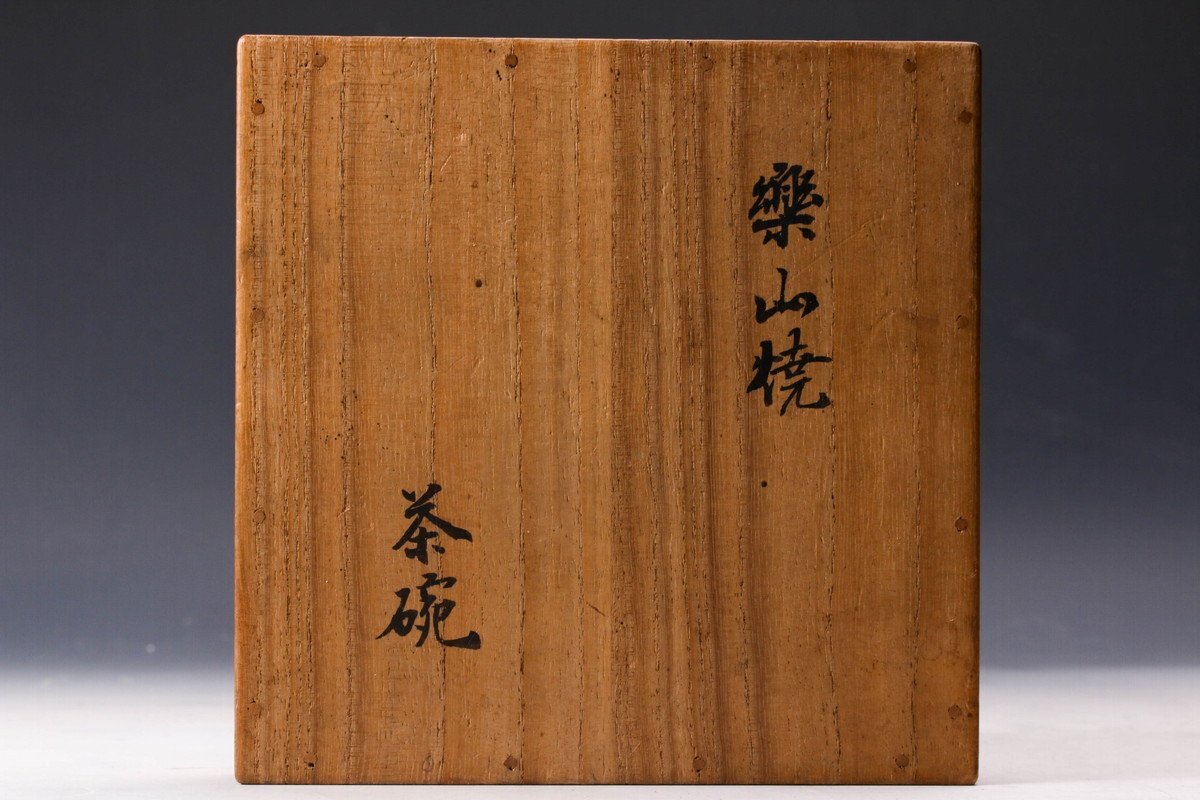 樂山焼
茶碗